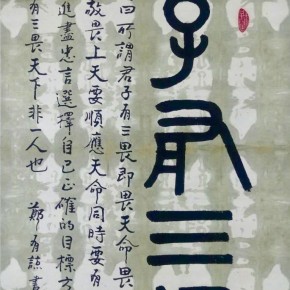 子有三
曰所謂君子有三畏即畏天命畏
敬畏上天要順應天命同時要有
進盡忠言選擇自己正確的目標方
有三畏天下非一人也 鄭有